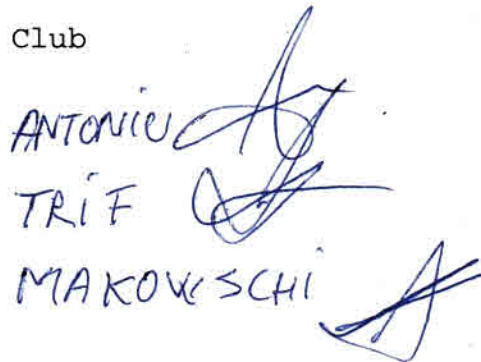 Club
ANTONIU
TRIF
MAKOWSCHI